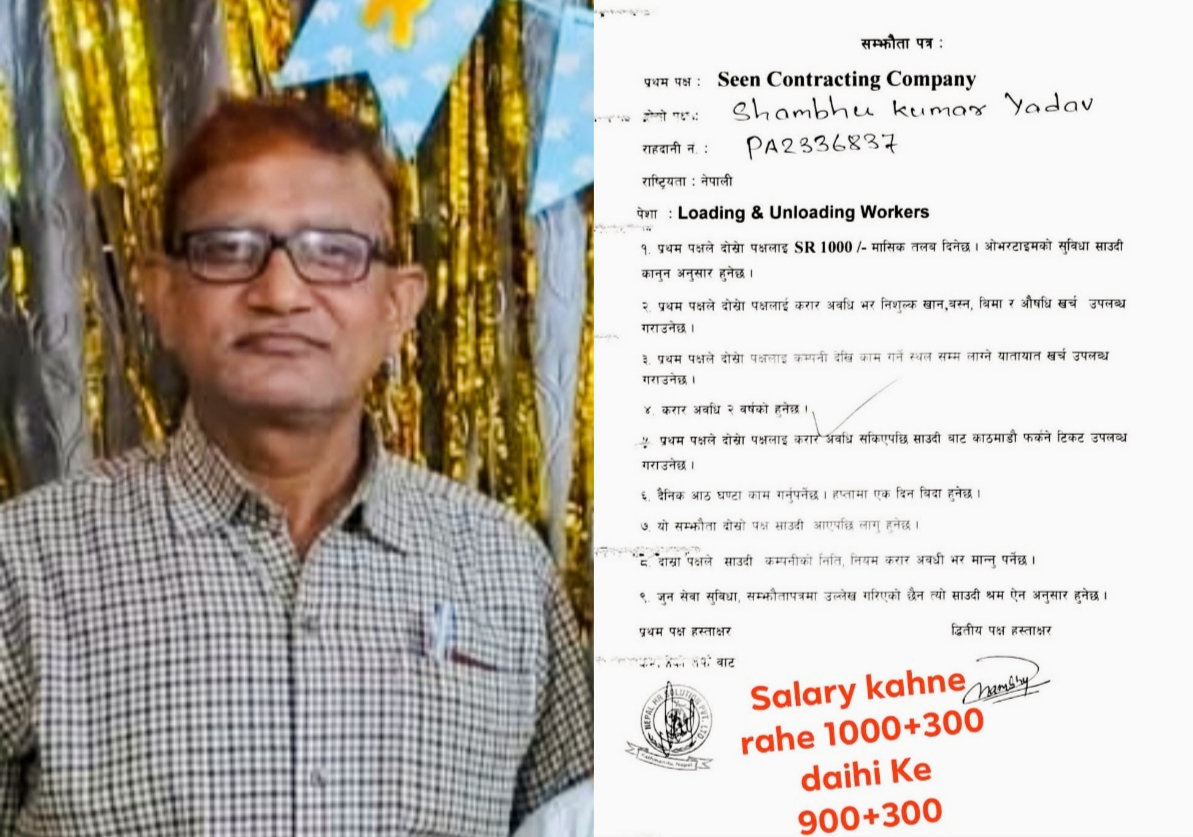 सम्झौता पत्र :
प्रथम पक्ष : Seen Contracting Company
दोस्रो पक्ष : Shambhu kumar Yadav
राहदानी नं. : PA2336837
राष्ट्रियता : नेपाली
पेशा : Loading & Unloading Workers
१. प्रथम पक्षले दोस्रो पक्षलाइ SR 1000 /- मासिक तलब दिनेछ । ओभरटाइमको सुविधा साउदी
कानुन अनुसार हुनेछ ।
२. प्रथम पक्षले दोस्रो पक्षलाई करार अवधि भर निशुल्क खान,बस्न, बिमा र औषधि खर्च उपलब्ध
गराउनेछ ।
३. प्रथम पक्षले दोस्रो पक्षलाइ कम्पनी देखि काम गर्ने स्थल सम्म लाग्ने यातायात खर्च उपलब्ध
गराउनेछ ।
४. करार अवधि २ बर्षको हुनेछ ।
५. प्रथम पक्षले दोस्रो पक्षलाइ करार अवधि सकिएपछि साउदी बाट काठमाडौ फर्कने टिकट उपलब्ध
गराउनेछ ।
६. दैनिक आठ घण्टा काम गर्नुपर्नेछ । हप्तामा एक दिन बिदा हुनेछ ।
७. यो सम्झौता दोस्रो पक्ष साउदी आएपछि लागु हुनेछ ।
८. दोस्रो पक्षले साउदी कम्पनीको निति, नियम करार अवधी भर मान्नु पर्नेछ ।
९. जुन सेवा सुविधा, सम्झौतापत्रमा उल्लेख गरिएको छैन त्यो साउदी श्रम ऐन अनुसार हुनेछ ।
प्रथम पक्ष हस्ताक्षर द्वितीय पक्ष हस्ताक्षर
बाट
NEPAL HR SOLUTION PVT. LTD
Kathmandu, Nepal
Salary kahne
rahe 1000+300
daihi Ke
900+300